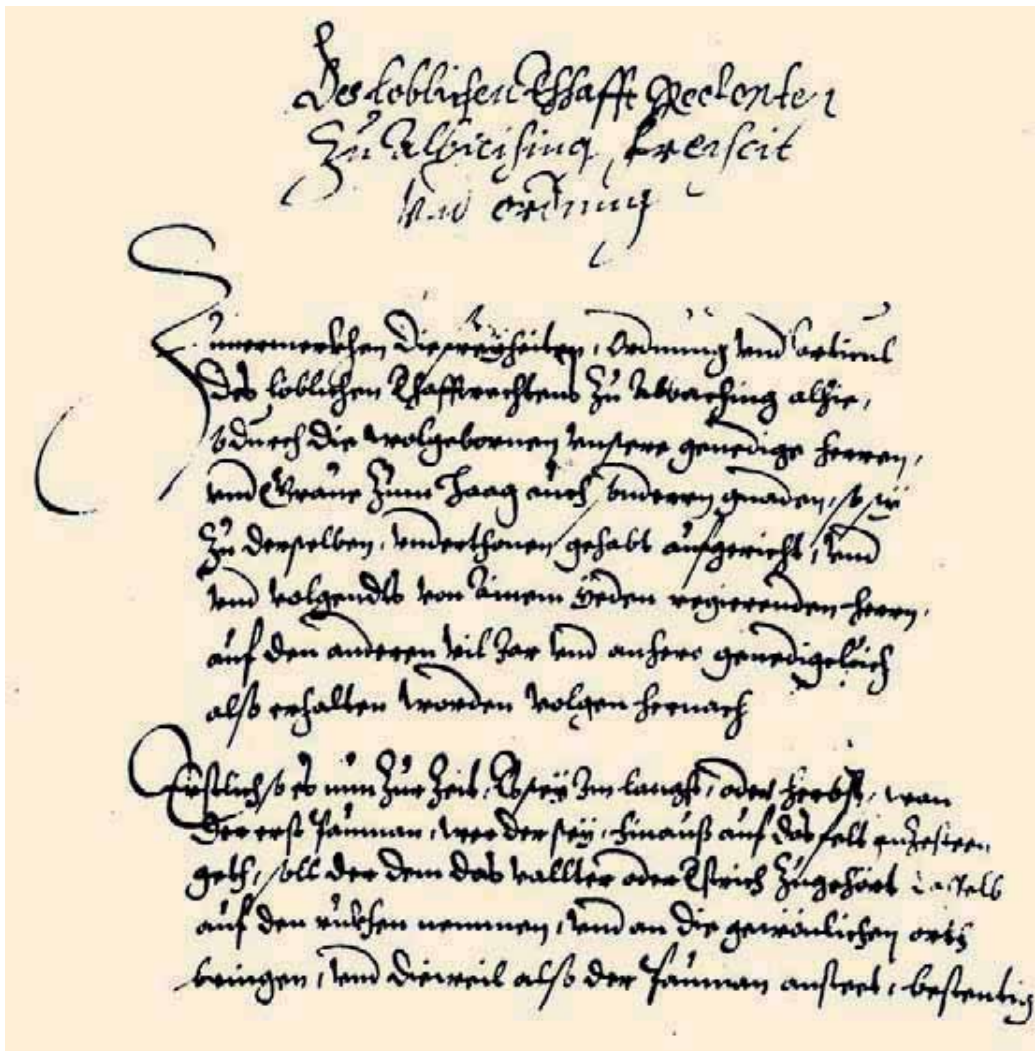 Des Loblichen Ehhafft Rechten
Zu Albiching freiheit
und ordnung
Zuuermerkhen die freyheiten, Ordnung und Articul
des loblichen Ehafftrechtens Zu Albaching alhie,
so durch die wolgebornen unsere genedige herren,
und Graue Zum Haag auch sondern gnaden, so sy
Zu derselben, underthonen gehabt aufgericht, und
und volgendts von ainem yeden regierenden herrn,
auf den anderen vil Jar und anhero genedigclich
also erhalten worden volgen hernach
Erstlich so es nun Zur Zeit, Es sey Im langß, oder herbst, wan
der erst Pauman, wer der sey, hinauß auf das felt
geth, soll der dem das vallter oder Estrich Zugehört dasselb
auf den rukhen nemmen, und an die gewonlichen orth
bringen, und dieweil also der Pauman ansteet, bestentig